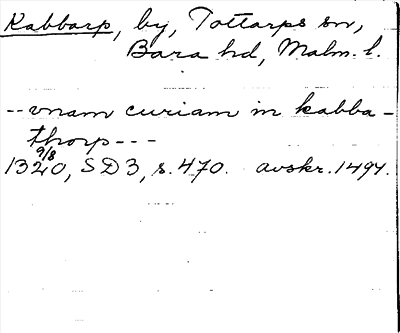 Kabbarp, by, Tottarps sn,
Bara hd, Malm. l.
-- vnam curiam in kabba-
thorp---
9/8
1320, SD3, s. 470. avskr. 1494.